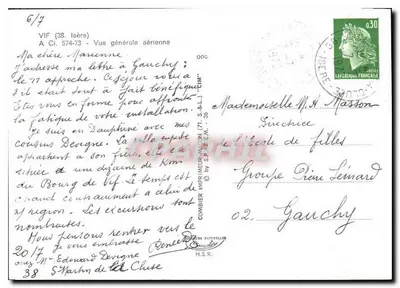 6/7
VIF (38. Isère)
A Ci. 574-73 - Vue générale aérienne
Ma chère Marienne
J'adresse ma lettre à Gauchy :
le 11 approche. Ce séjour vous a
il était dont à fait bénéfique
Êtes vous en forme pour affronter
la fatigue de votre installation.
Je suis en Dauphiné avec mes
cousins Devigne. La villa
appartient à son fils, elle
située à une dizaine de kms
du Bourg de Vif. Le temps est
chaud contrairement à celui de
région. Les excursions sont
nombreuses.
Nous pensons rentrer vers le
20/7 Je vous embrasse
chez Mr Edouard Devigne
38 St Martin de la Cluse
COMBIER IMPRIMEUR MACON (71. S.-&-L.) "CIM"
© by S.P.A.D.E.M.
H.S.R.
0,30
REPUBLIQUE FRANÇAISE
Mademoiselle M. H Masson
Directrice
École de filles
Groupe Irène Lénard
02. Gauchy